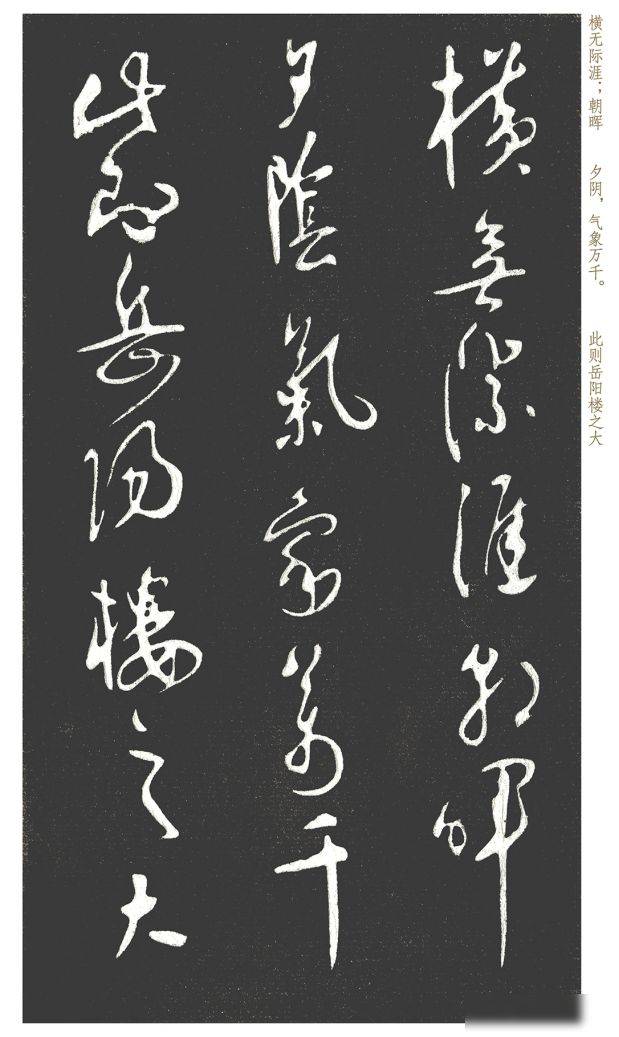 横无际涯；朝晖 夕阴，气象万千。 此则岳阳楼之大
橫無際涯朝暉
夕陰氣象萬千
此即岳陽樓之大